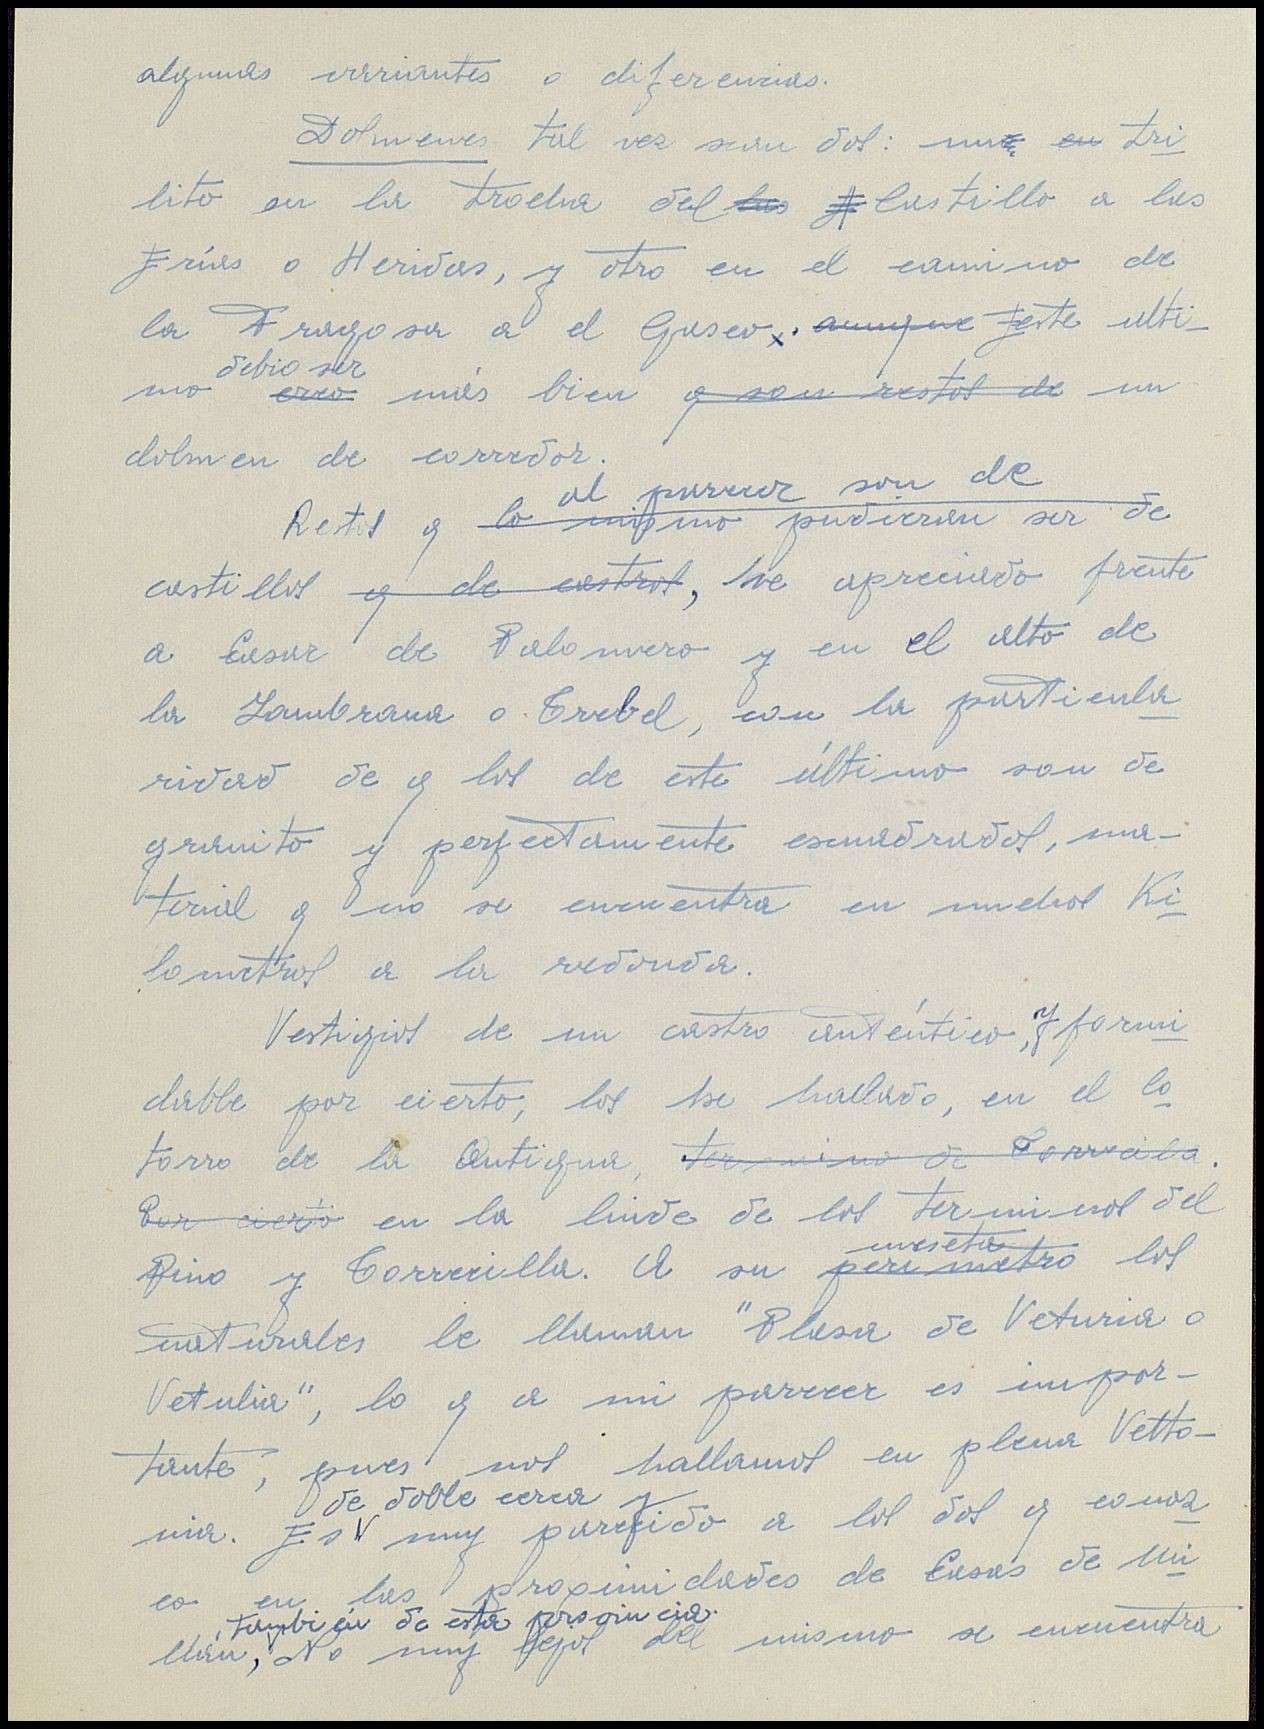 algunas variantes o diferencias.
Dolmenes tal vez sean dos: uno en tri
lito en la trocha del las Castillo a las
Erías o Heridas, y otro en el camino de
la Fragosa a el Gasco. aunque Este ulti-
debio ser
mo creo más bien q son restos de un
dolmen de corredor.
al parecer son de
Restos q lo mismo pudieran ser de
castillos q de castros, he apreciado frente
a Casar de Palomero y en el alto de
la Zambrana o Trebel, con la particula
ridad de q los de este último son de
granito y perfectamente escuadrados, ma-
terial q no se encuentra en muchos Ki
lometros a la redonda.
Vestigios de un castro auténtico, y formi
dable por cierto, los he hallado, en el co
torro de la Antigua, termino de Torrecilla.
Por cierto en la linde de los terminos del
meseta
Pino y Torrecilla. A su perimetro los
naturales le llaman "Plasa de Veturia o
Vetulia", lo q a mi parecer es impor-
tante, pues nos hallamos en plena Vetto-
de doble cerca y
nia. Es muy parecido a los dos q conoz
co en las proximidades de Casas de Mi
también de esta provincia.
llán, No muy lejos del mismo se encuentra